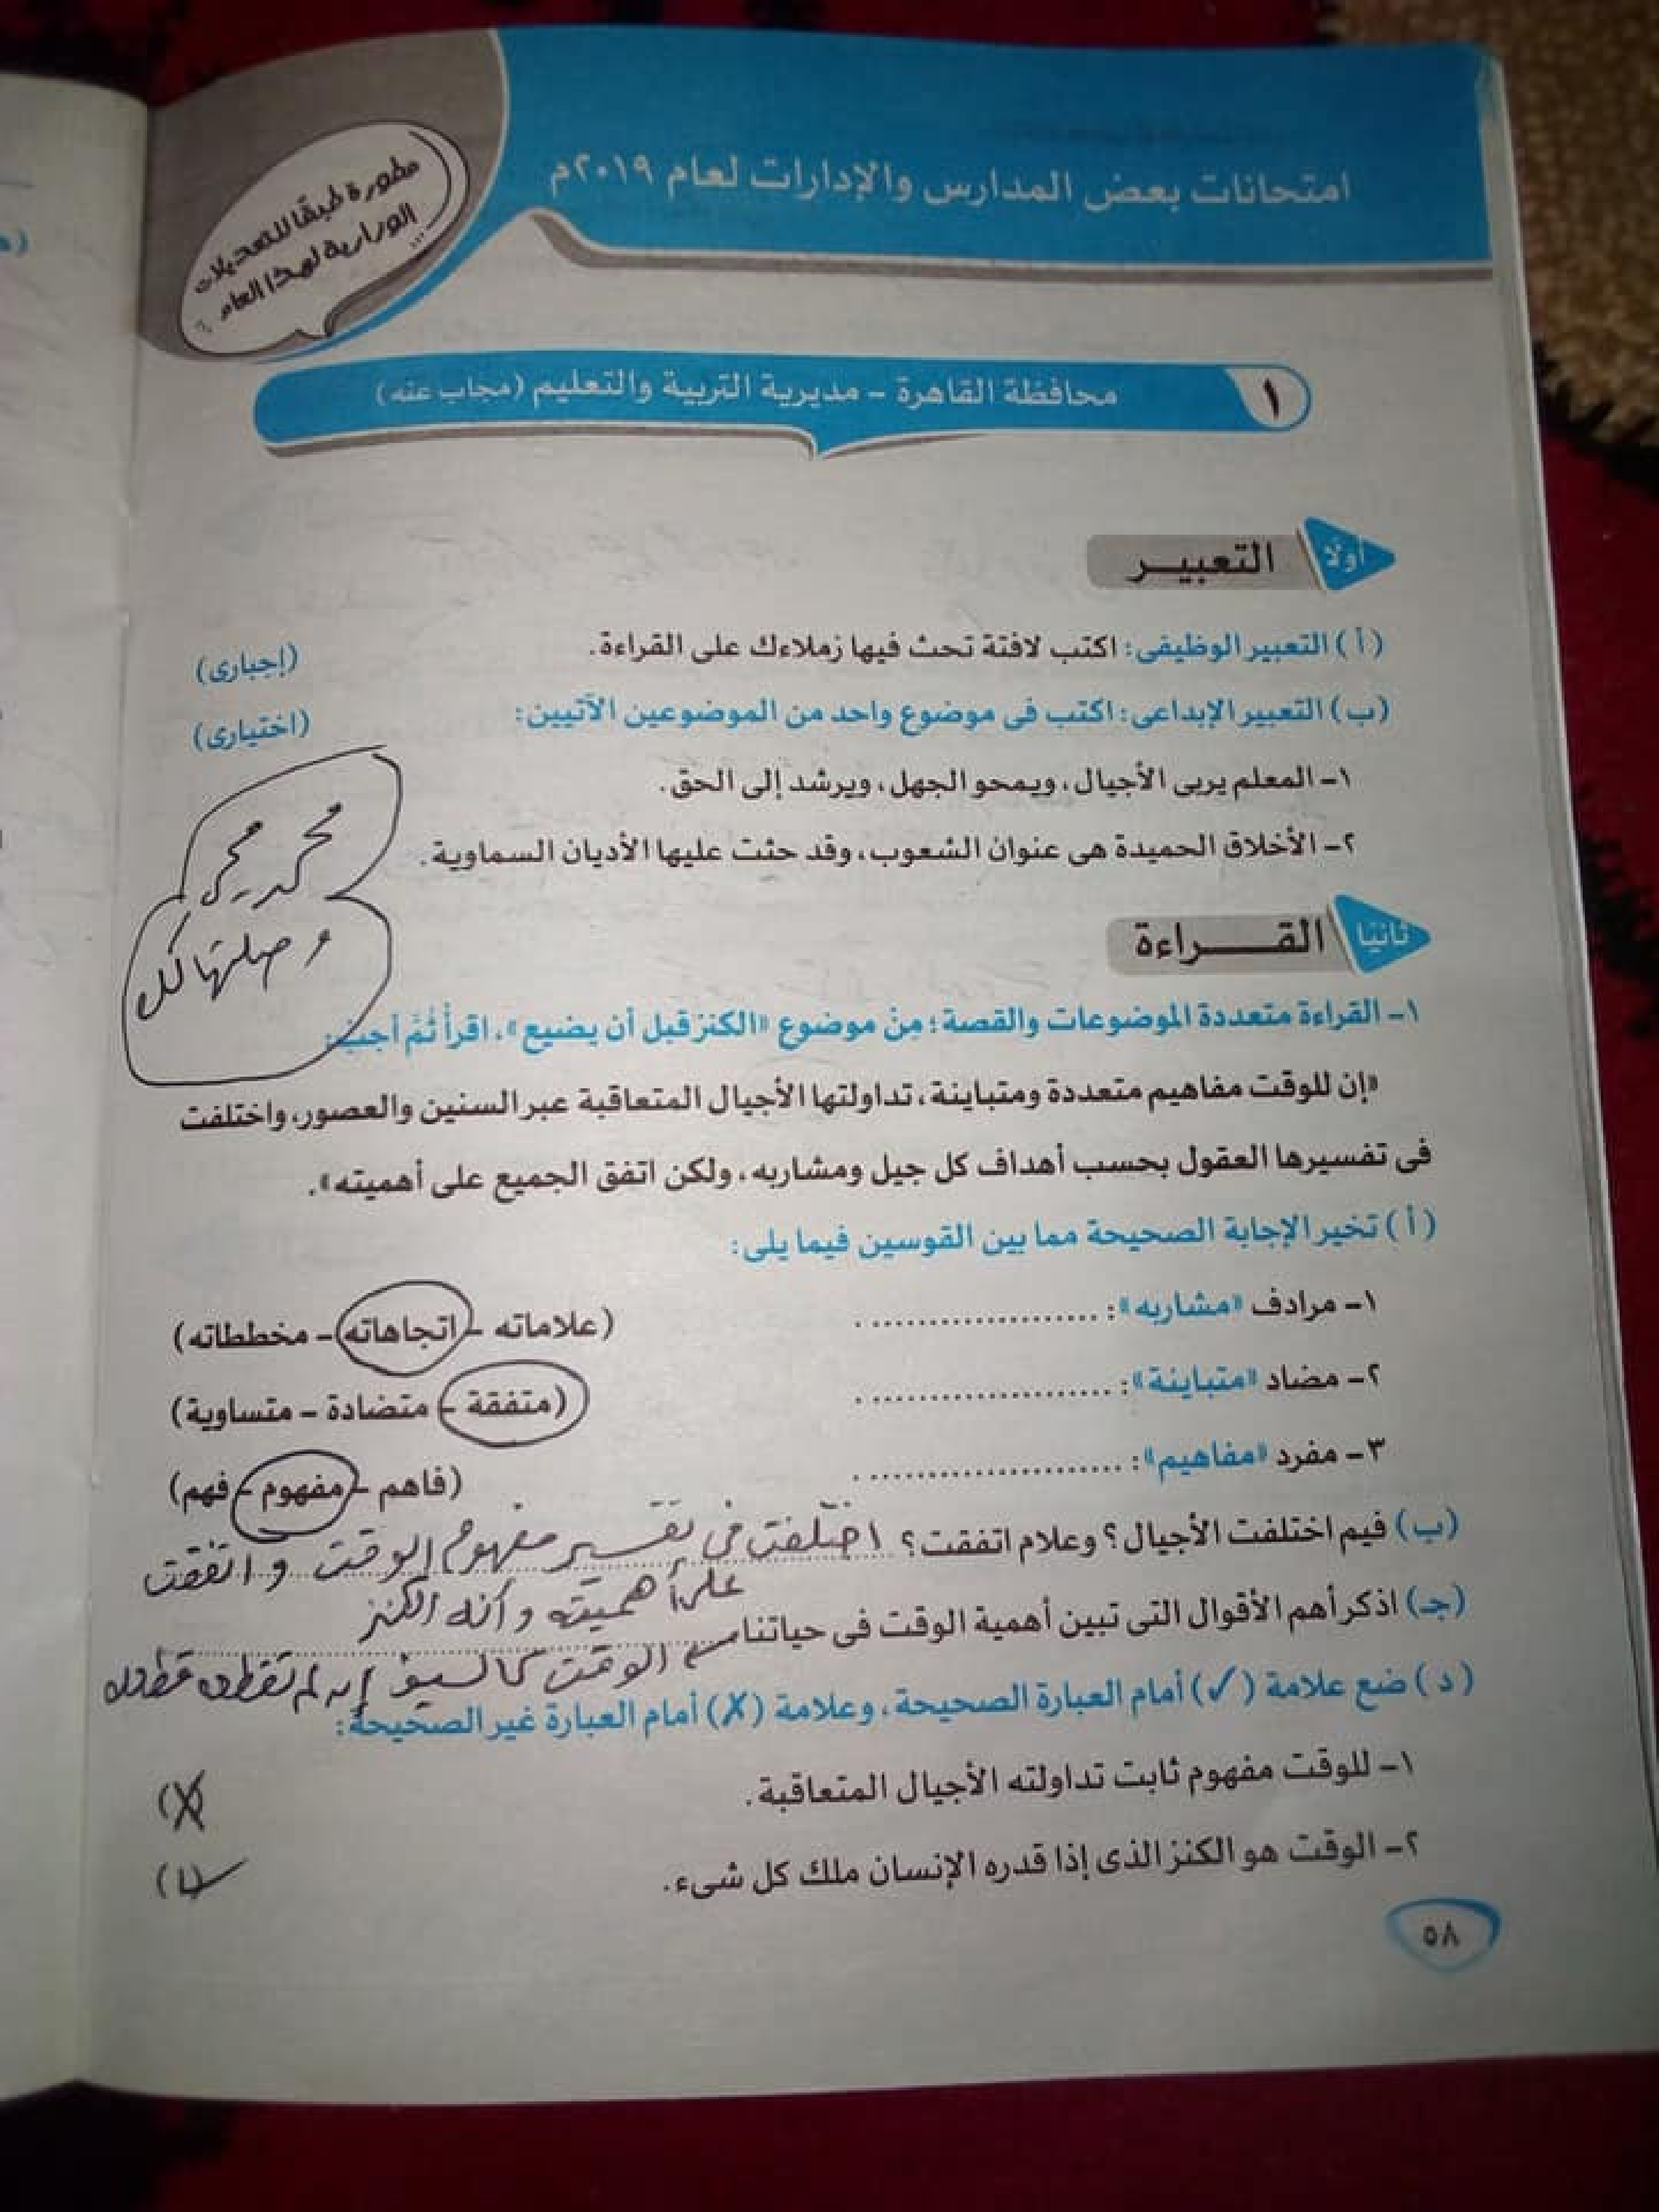 امتحانات بعض المدارس والإدارات لعام ٢٠١٩م
مطورة طبقًا للتعديلات
الوزارية لهذا العام
١ محافظة القاهرة - مديرية التربية والتعليم (مجاب عنه)
أولًا التعبير
(أ) التعبير الوظيفى: اكتب لافتة تحث فيها زملاءك على القراءة. (إجبارى)
(ب) التعبير الإبداعى: اكتب فى موضوع واحد من الموضوعين الآتيين: (اختيارى)
١- المعلم يربى الأجيال، ويمحو الجهل، ويرشد إلى الحق.
٢- الأخلاق الحميدة هى عنوان الشعوب، وقد حثت عليها الأديان السماوية.
ثانيًا القــــراءة
١- القراءة متعددة الموضوعات والقصة؛ مِنْ موضوع «الكنز قبل أن يضيع». اقرأ ثُمَّ أجب:
«إن للوقت مفاهيم متعددة ومتباينة، تداولتها الأجيال المتعاقبة عبر السنين والعصور، واختلفت
فى تفسيرها العقول بحسب أهداف كل جيل ومشاربه، ولكن اتفق الجميع على أهميته».
(أ) تخير الإجابة الصحيحة مما بين القوسين فيما يلى:
١- مرادف «مشاربه»: ...................... . (علاماته - اتجاهاته - مخططاته)
٢- مضاد «متباينة»: ...................... . (متفقة - متضادة - متساوية)
٣- مفرد «مفاهيم»: ...................... . (فاهم - مفهوم - فهم)
(ب) فيم اختلفت الأجيال؟ وعلام اتفقت؟ اختلفت في تفسير مفهوم الوقت واتفقت
على أهميته وأنه الكنز
(جـ) اذكر أهم الأقوال التى تبين أهمية الوقت فى حياتنا الوقت كالسيف إن لم تقطعه قطعك
(د) ضع علامة (✓) أمام العبارة الصحيحة، وعلامة (X) أمام العبارة غير الصحيحة:
١- للوقت مفهوم ثابت تداولته الأجيال المتعاقبة. (X)
٢- الوقت هو الكنز الذى إذا قدره الإنسان ملك كل شىء. (✓)
٥٨